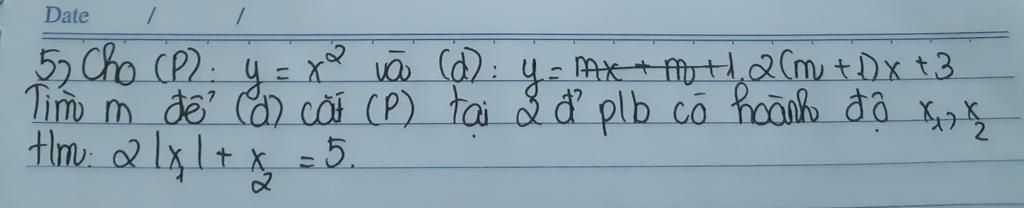 Date / /
5, Cho (P): y = x² và (d): y = mx + m + 1. 2(m + 1)x + 3
Tìm m để (d) cắt (P) tại 2 đ' plb có hoành độ x₁, x₂
tlm: 2|x₁| + x₂ = 5.